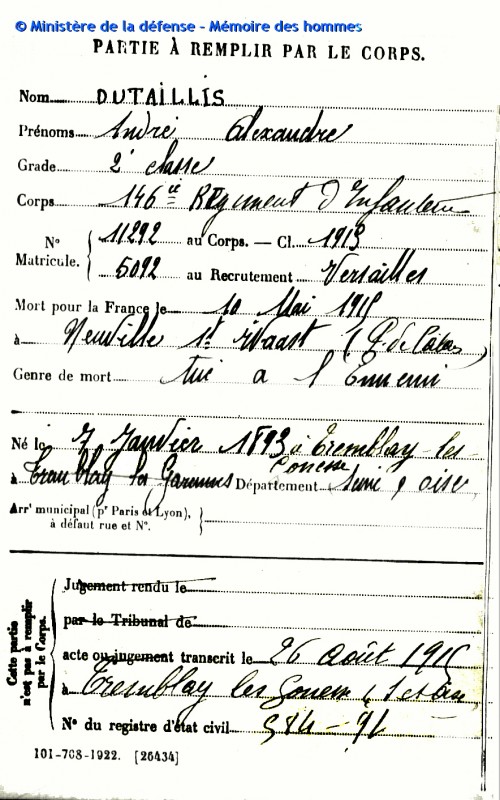 © Ministère de la défense - Mémoire des hommes
PARTIE À REMPLIR PAR LE CORPS.
Nom DUTAILLIS
Prénoms André Alexandre
Grade 2e classe
Corps 146e Régiment d'Infanterie
N° Matricule. { 11292 au Corps. — Cl. 1913
5092 au Recrutement Versailles
Mort pour la France le 10 Mai 1915
à Neuville St Waast (P. de Calais)
Genre de mort tué a l'Ennemi
Né le 7 Janvier 1893 à Tremblay-les-
Gonesse
à Tremblay les Garennes Département Seine & Oise
Arrt municipal (pr Paris et Lyon),
à défaut rue et N°.
Cette partie
n'est pas à remplir
par le Corps.
Jugement rendu le
par le Tribunal de
acte ou jugement transcrit le 26 Août 1915
à Tremblay les Goness (S et Oise)
N° du registre d'état civil 584-71
101-708-1922. [26434]